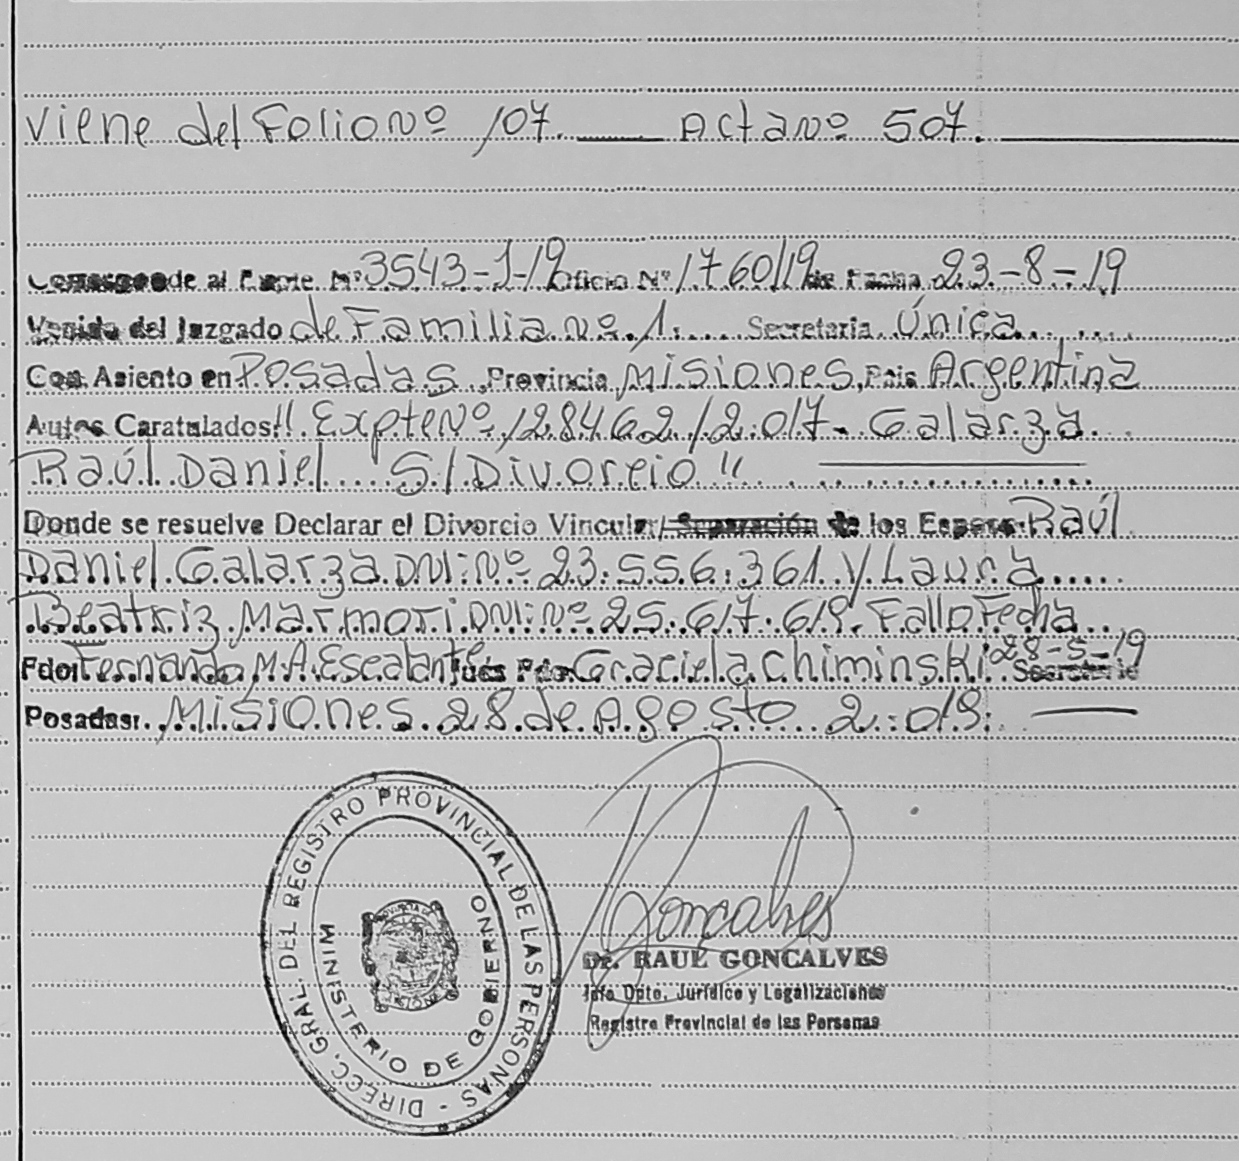 Viene del Folio Nº 107. Acta Nº 507.
Corresponde al Expte Nº 3543-1-19 Oficio Nº 1760/19 de Fecha 23-8-19
Venido del Juzgado de Familia Nº 1. Secretaria Única
Con Asiento en Posadas Provincia Misiones, Pais Argentina
Autos Caratulados: "Expte Nº 128462/2017- Galarza
Raúl Daniel S/Divorcio"
Donde se resuelve Declarar el Divorcio Vincular/ Separación de los Esposos: Raúl
Daniel Galarza DNI: Nº 23.556.361 y Laura
Beatriz Marmori DNI: Nº 25.617.619. Fallo Fecha
28-5-19
Fdo: Fernando M.A. Escalante Juez Fdo: Graciela Chiminski Secretario
Posadas: , Misiones 28 de Agosto 2.019.
DIRECC. GRAL. DEL REGISTRO PROVINCIAL DE LAS PERSONAS -
MINISTERIO DE GOBIERNO
MISIONES
Goncalves
Dr. RAUL GONCALVES
Jefe Dpto. Jurídico y Legalizaciones
Registro Provincial de las Personas